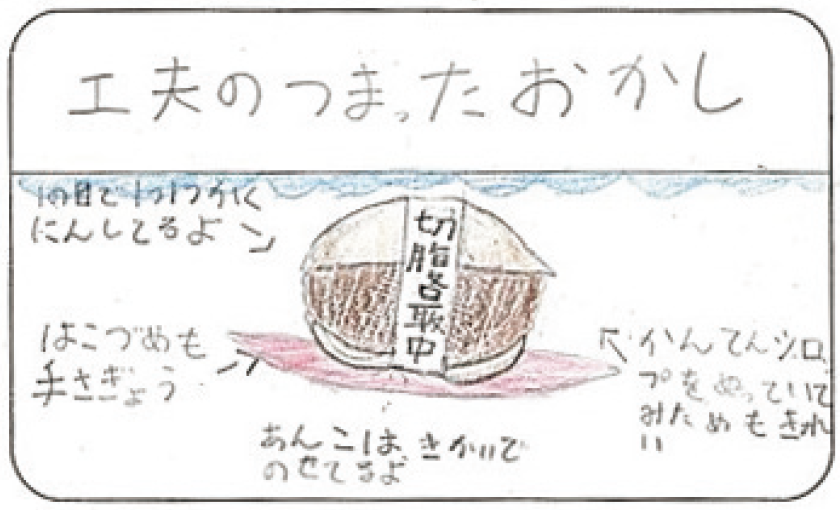 工夫のつまったおかし
人の目で1つ1つかく
にんしてるよ
切腹最中
はこづめも
手さぎょう
かんてんシロッ
プをぬっていて
みためもきれ
い
あんこは、きかいで
のせてるよ